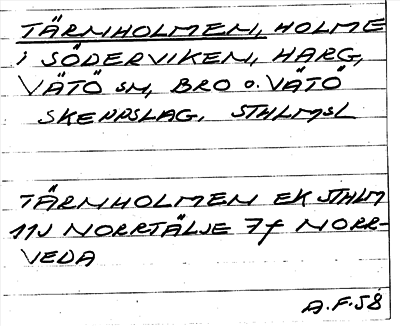 TÄRNHOLMEN, HOLME
i SÖDERVIKEN, HARG,
VÄTÖ SN, BRO o. VÄTÖ
SKEPPSLAG, STHLMSL
TÄRNHOLMEN EK STHLM
11J NORRTÄLJE 7f NORR-
VEDA
A.F.58